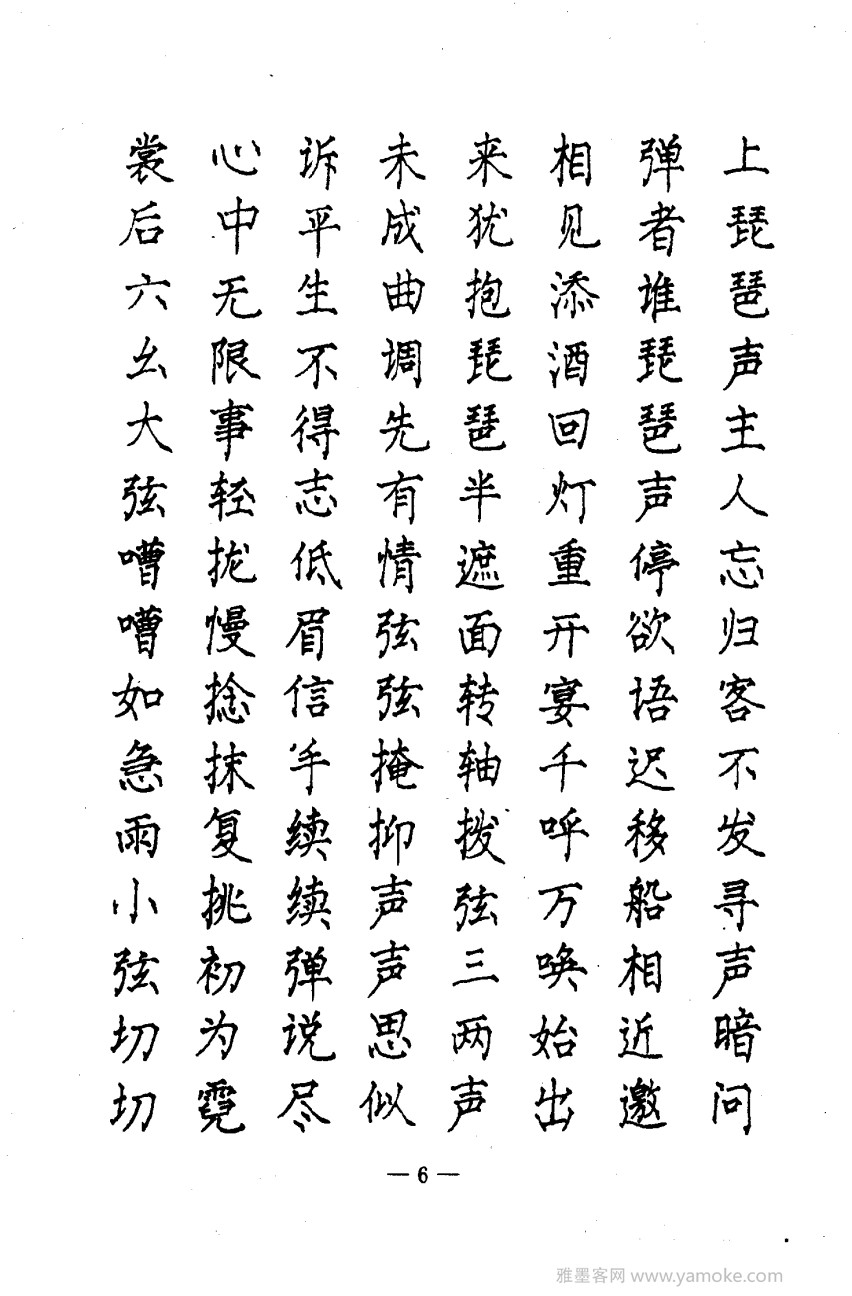 上琵琶声主人忘归客不发寻声暗问
弹者谁琵琶声停欲语迟移船相近邀
相见添酒回灯重开宴千呼万唤始出
来犹抱琵琶半遮面转轴拨弦三两声
未成曲调先有情弦弦掩抑声声思似
诉平生不得志低眉信手续续弹说尽
心中无限事轻拢慢捻抹复挑初为霓
裳后六幺大弦嘈嘈如急雨小弦切切
— 6 —
雅墨客网 www.yamoke.com